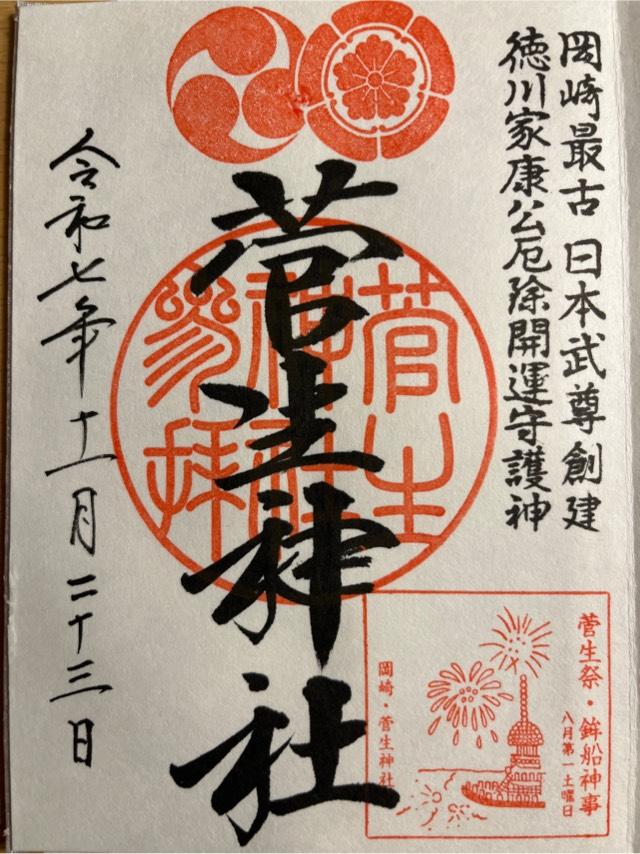 岡崎最古 日本武尊創建
徳川家康公厄除開運守護神
菅生神社
菅生
神社
参拝
令和七年十一月二十三日
菅生祭・鉾船神事
八月第一土曜日
岡崎・菅生神社